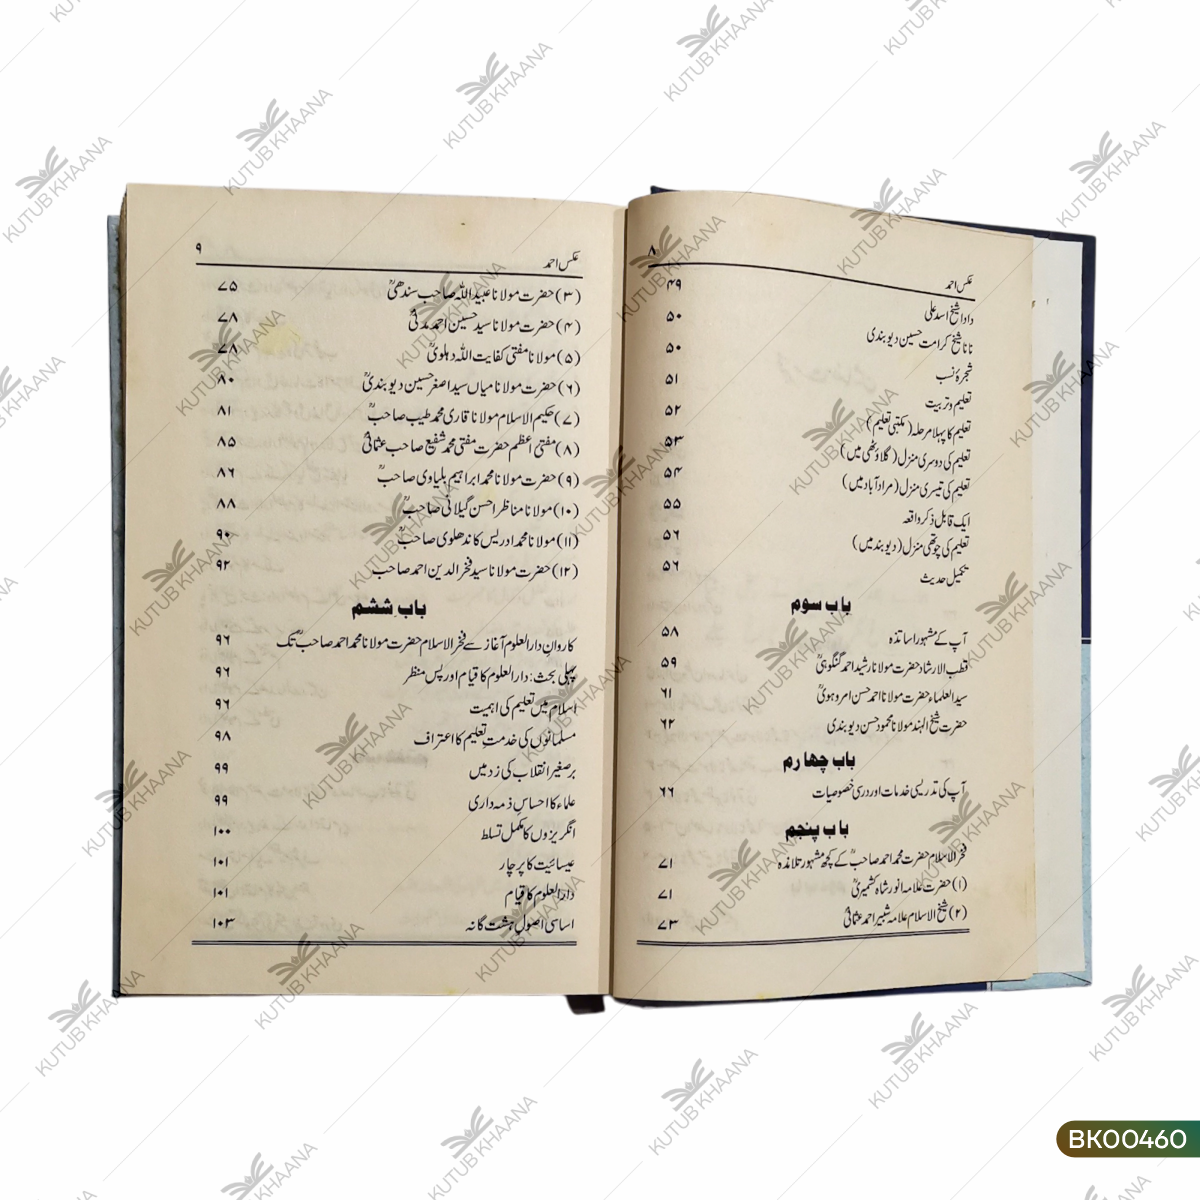 ۸
عکس احمد
۴۹
دادا شیخ اسد علی ۵۰
نانا شیخ کرامت حسین دیوبندی ۵۰
شجرۂ نسب ۵۱
تعلیم و تربیت ۵۲
تعلیم کا پہلا مرحلہ (مکتبی تعلیم) ۵۳
تعلیم کی دوسری منزل (گلاؤٹھی میں) ۵۴
تعلیم کی تیسری منزل (مراد آباد میں) ۵۵
ایک قابل ذکر واقعہ ۵۶
تعلیم کی چوتھی منزل (دیوبند میں) ۵۶
تکمیل حدیث
باب سوم
آپ کے مشہور اساتذہ ۵۸
قطب الارشاد حضرت مولانا رشید احمد گنگوہیؒ ۵۹
سید العلماء حضرت مولانا احمد حسن امروہویؒ ۶۱
حضرت شیخ الہند مولانا محمود حسن دیوبندی ۶۲
باب چہارم
آپ کی تدریسی خدمات اور درسی خصوصیات ۶۶
باب پنجم
فخر الاسلام حضرت محمد احمد صاحبؒ کے کچھ مشہور تلامذہ ۷۱
(۱) حضرت علامہ انور شاہ کشمیریؒ ۷۱
(۲) شیخ الاسلام علامہ شبیر احمد عثمانیؒ ۷۳
۹
عکس احمد
(۳) حضرت مولانا عبید اللہ صاحب سندھیؒ ۷۵
(۴) حضرت مولانا سید حسین احمد مدنیؒ ۷۸
(۵) مولانا مفتی کفایت اللہ دہلویؒ ۷۸
(۶) حضرت مولانا میاں سید اصغر حسین دیوبندیؒ ۸۰
(۷) حکیم الاسلام مولانا قاری محمد طیب صاحبؒ ۸۱
(۸) مفتی اعظم حضرت مفتی محمد شفیع صاحب عثمانیؒ ۸۵
(۹) حضرت مولانا محمد ابراہیم بلیاوی صاحبؒ ۸۶
(۱۰) مولانا مناظر احسن گیلانی صاحبؒ ۸۸
(۱۱) مولانا محمد ادریس کاندھلوی صاحبؒ ۹۰
(۱۲) حضرت مولانا سید فخر الدین احمد صاحب ۹۲
باب ششم
کاروان دار العلوم آغاز سے فخر الاسلام حضرت مولانا محمد احمد صاحبؒ تک ۹۶
پہلی بحث: دار العلوم کا قیام اور پس منظر ۹۶
اسلام میں تعلیم کی اہمیت ۹۶
مسلمانوں کی خدمتِ تعلیم کا اعتراف ۹۸
برصغیر انقلاب کی زد میں ۹۹
علماء کا احساس ذمہ داری ۹۹
انگریزوں کا مکمل تسلط ۱۰۰
عیسائیت کا پرچار ۱۰۱
دار العلوم کا قیام ۱۰۱
اساسی اصول ہشت گانہ ۱۰۳
KUTUB KHAANA
BK00460